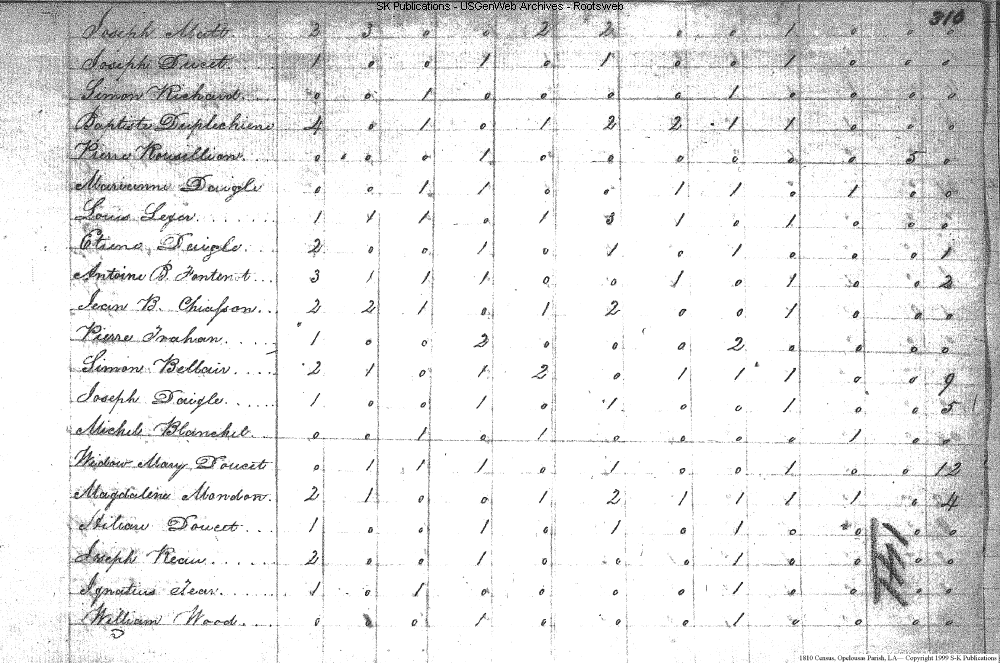 SK Publications - USGenWeb Archives - Rootsweb
310
Joseph Matt 2 3 0 0 2 2 0 0 1 0 0 0
Joseph Ducet 1 0 0 1 0 1 0 0 1 0 0 0
Simon Richard 0 0 1 0 0 0 0 1 0 0 0 0
Baptiste Duplechiene 4 0 1 0 1 2 2 1 1 0 0 0
Pierre Rousillian 0 0 0 1 0 0 0 0 0 0 5 0
Marianne Daigle 0 0 1 1 0 0 1 1 0 1 0 0
Louis Leger 1 1 1 0 1 3 1 0 1 0 0 0
Etiene Daigle 2 0 0 1 0 1 0 1 0 0 0 1
Antoine B. Fontenot 3 1 1 1 0 0 1 0 1 0 0 2
Jean B. Chiasson 2 2 1 0 1 2 0 0 1 0 0 0
Pierre Trahan 1 0 0 2 0 0 0 2 0 0 0 0
Simon Bellair 2 1 0 1 2 0 1 1 1 0 0 9
Joseph Daigle 1 0 0 1 0 1 0 0 1 0 0 5
Michele Blanchel 0 0 1 0 1 0 0 0 0 1 0 0
Widow Mary Doucet 0 1 1 1 0 1 0 0 1 0 0 12
Magdalene Mondon 2 1 0 0 1 2 1 1 1 1 0 4
Doucet 1 0 0 1 0 1 0 1 0 0 0 0
Joseph Reau 2 0 0 1 0 0 0 1 0 0 0 0
Ignatius 1 0 1 0 0 0 0 1 0 0 0 0
William Wood 0 0 0 1 0 0 0 1 0 0 0 0
1810 Census, Opelousas Parish, LA -- Copyright 1999 S-K Publications